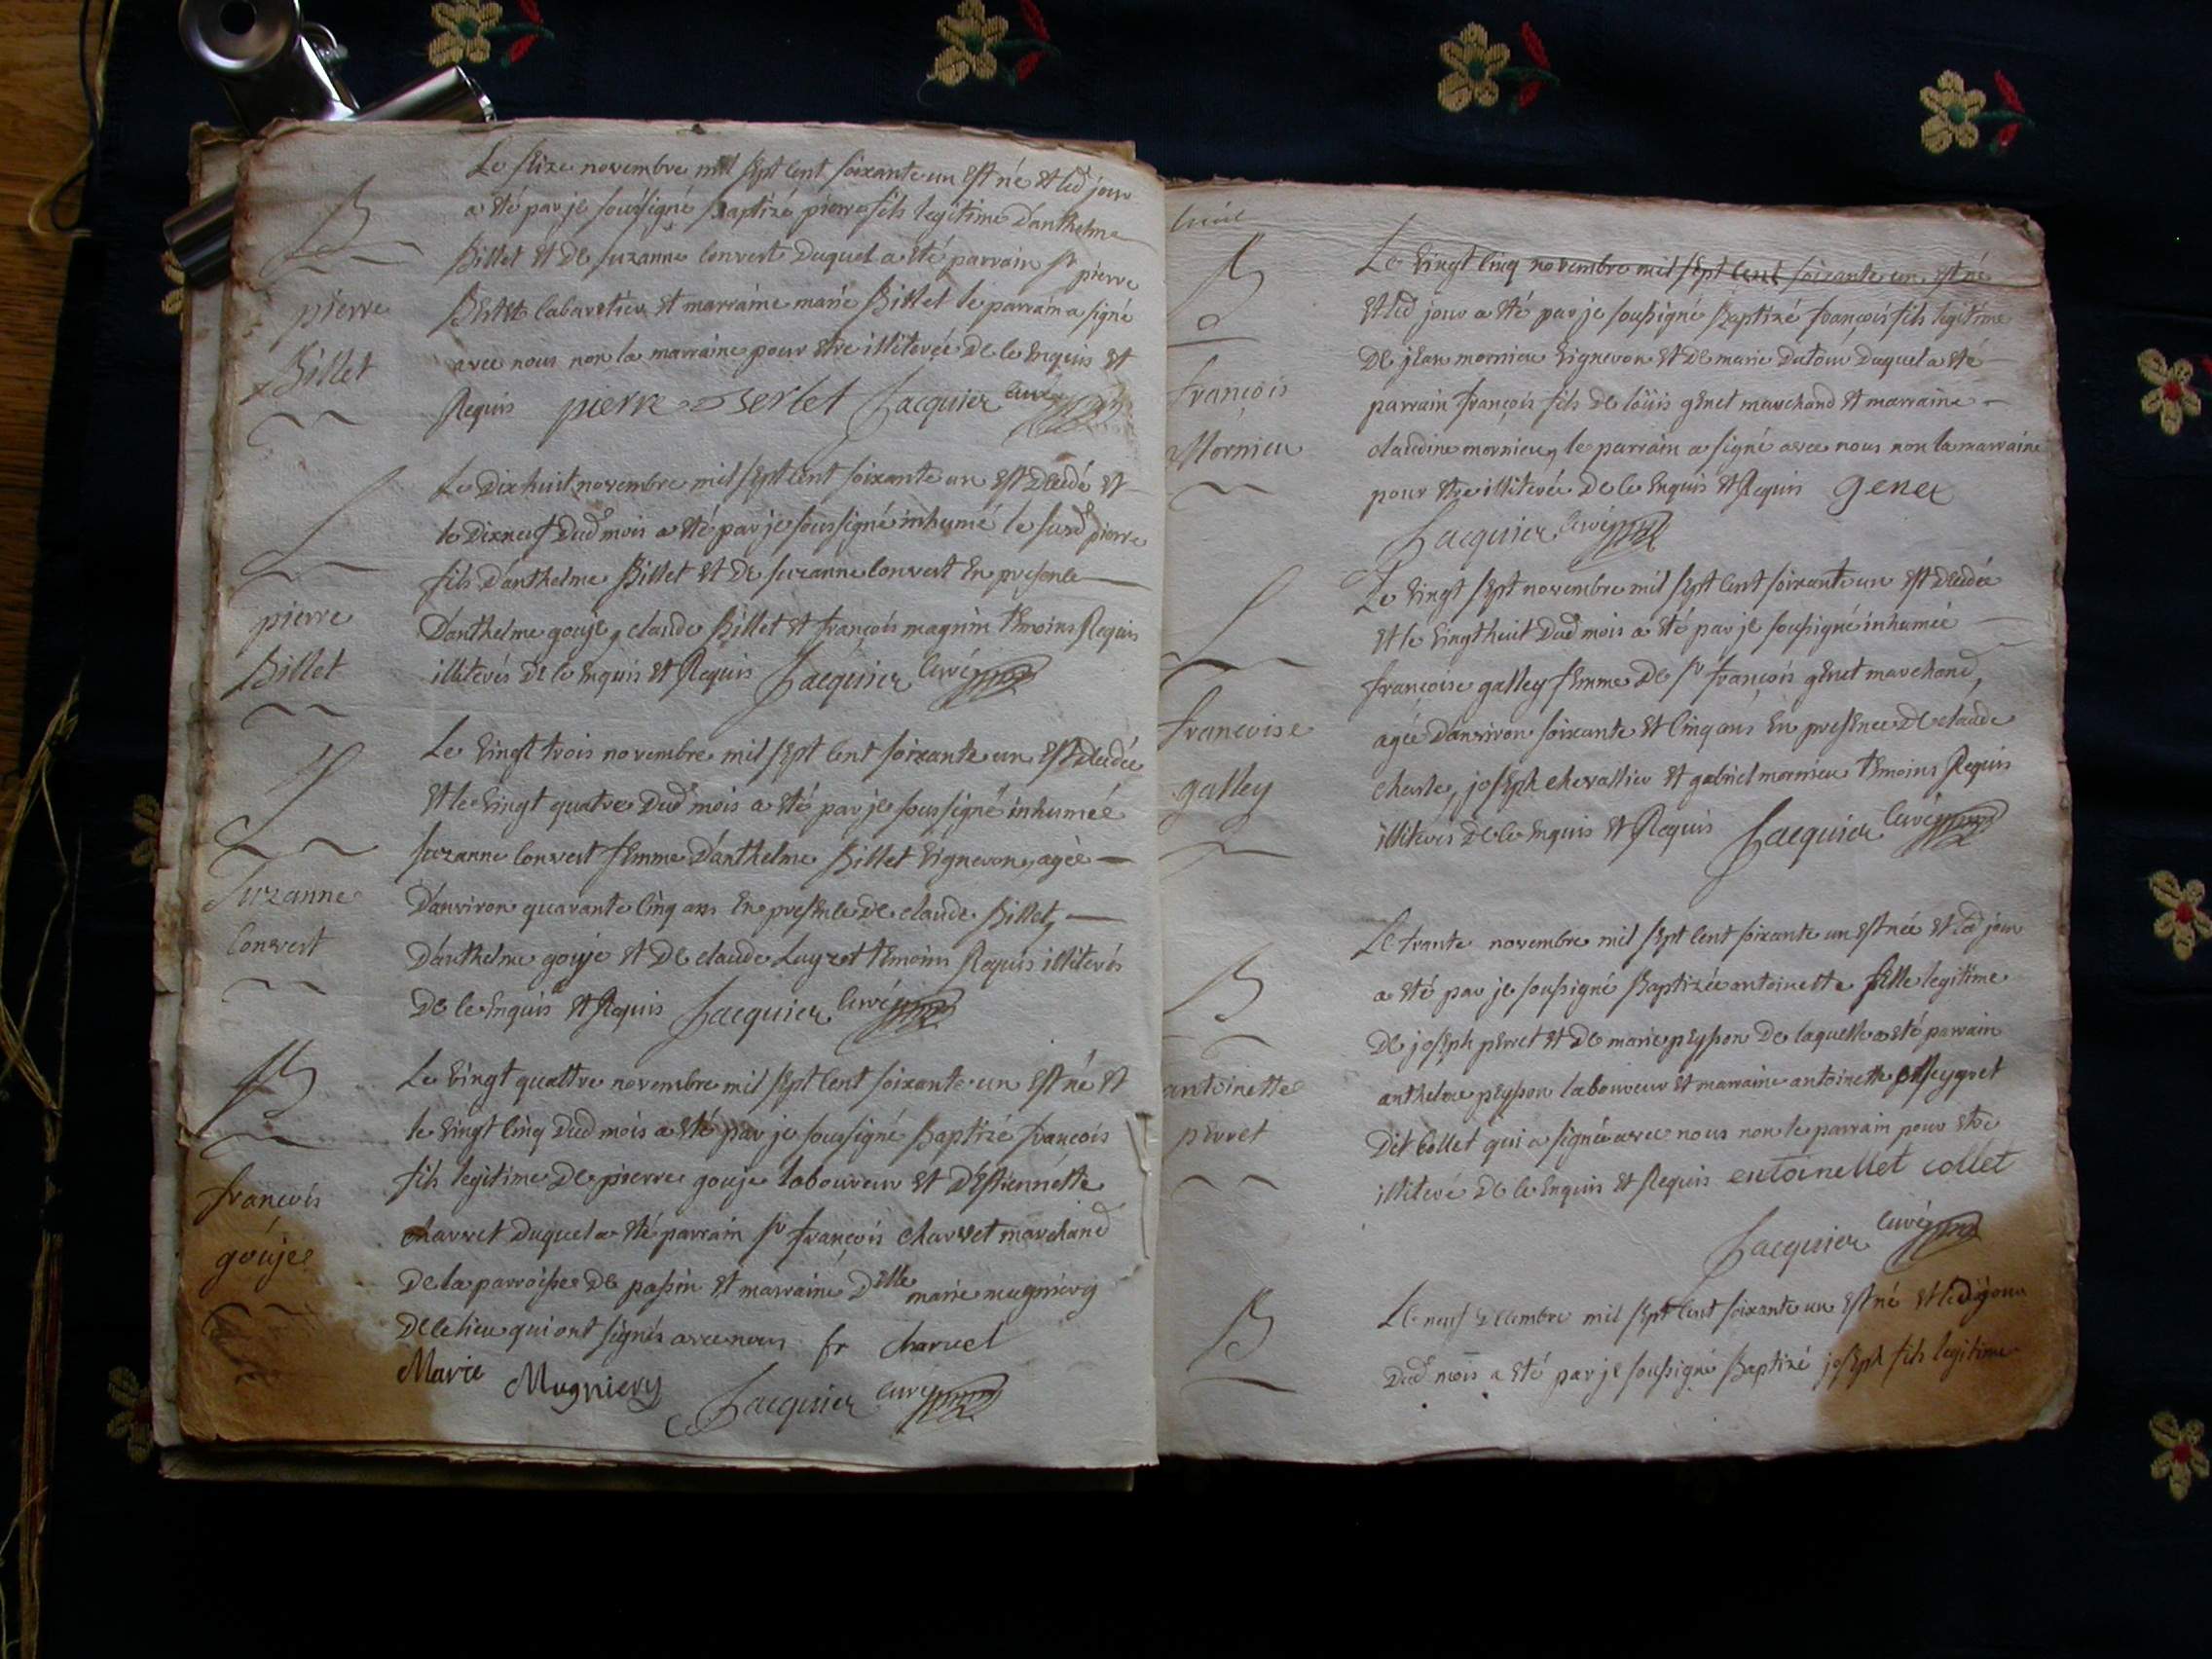 B
pierre
Billet
Le seize novembre mil sept cent soixante un est né et led jour
a été par je soussigné Baptizé pierre fils legitime d'anthelme
Billet et de suzanne convert duquel a été parrain sr pierre
cabaretier et marraine marie Billet le parrain a signé
avec nous non la marraine pour etre illiterée de ce enquis et
Requis pierre serlet Jacquier curé
S
pierre
Billet
Le dixhuit novembre mil sept cent soixante un est décédé et
le dixneuf dud mois a été par je soussigné inhumé le susd pierre
fils d'anthelme Billet et de suzanne convert en presence
d'anthelme gouje, claude Billet et françois magnin temoins Requis
illiterés de ce enquis et Requis Jacquier curé
S
Suzanne
Convert
Le vingt trois novembre mil sept cent soixante un est décédée
et le vingt quatre dud mois a été par je soussigné inhumée
suzanne convert femme d'anthelme Billet vigneron, agée
d'anviron quarante cinq ans en presence de claude Billet,
d'anthelme gouje et de claude Luyzet temoins Requis illiterés
de ce enquis et Requis Jacquier curé
B
francois
goüje
Le vingt quattre novembre mil sept cent soixante un est né et
le vingt cinq dud mois a été par je soussigné Baptizé françois
fils legitime de pierre gouje laboureur et d'Estiennette
charvet duquel a été parrain sr françois charvet marchand
de la parroisse de passin et marraine Delle marie mugniery
de ce lieu qui ont signés avec nous fr charvet
Marie Mugniery Jacquier curé
B
françois
Mornieu
Le vingt cinq novembre mil sept cent soixante un est né
et led jour a été par je soussigné Baptizé françois fils legitime
de jean mornieu vigneron et de marie dutour duquel a été
parrain françois fils de loüis genet marchand et marraine
claudine mornieu, le parrain a signé avec nous non la marraine
pour etre illiterée de ce enquis et Requis genet
Jacquier curé
S
francoise
galley
Le vingt sept novembre mil sept cent soixante un est décédée
et le vingthuit dud mois a été par je soussigné inhumée
françoise galley femme de sr françois genet marchand,
agée d'anviron soixante et cinq ans en presence de claude
charle, joseph chevallier et gabriel mornieu temoins Requis
illiterés de ce enquis et Requis Jacquier curé
B
antoinette
perret
Le trante novembre mil sept cent soixante un est née et led jour
a été par je soussigné Baptizée antoinette fille legitime
de joseph perret et de marie peysson de laquelle a été parrain
anthelme peysson laboureur et marraine antoinette
dit collet qui a signé avec nous non le parrain pour etre
illiteré de ce enquis et Requis entoinellet collet
Jacquier curé
B
Le neuf decembre mil sept cent soixante un est né et led jour
dud mois a été par je soussigné Baptizé joseph fils legitime